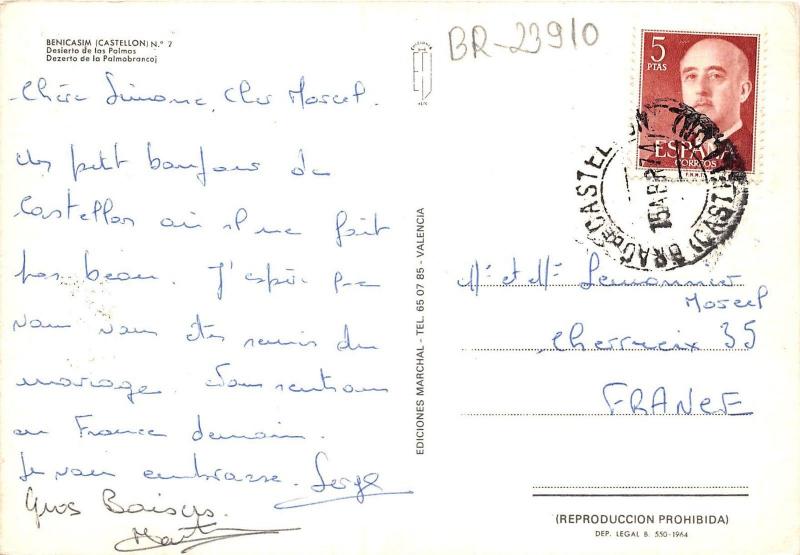 BENICASIM (CASTELLON) N.º 7
Desierto de las Palmas
Dezerto de la Palmobrancoj
BR-23910
5
PTAS
ESPAÑA
CORREOS
F.N.M.T.
15 ABR 74
Chère Simone, Cher Marcel.
Un petit bonjour de
Castellon où il ne fait
pas beau. J'espère que
vous vous êtes remis du
mariage. Nous rentrons
en France demain.
Je vous embrasse. Serge
Gros Baisers.
EDICIONES MARCHAL - TEL. 65 07 85 - VALENCIA
Mr et Me Lemonnier
Marcel
Cherrueix 35
FRANCE
(REPRODUCCION PROHIBIDA)
DEP. LEGAL B. 550-1964